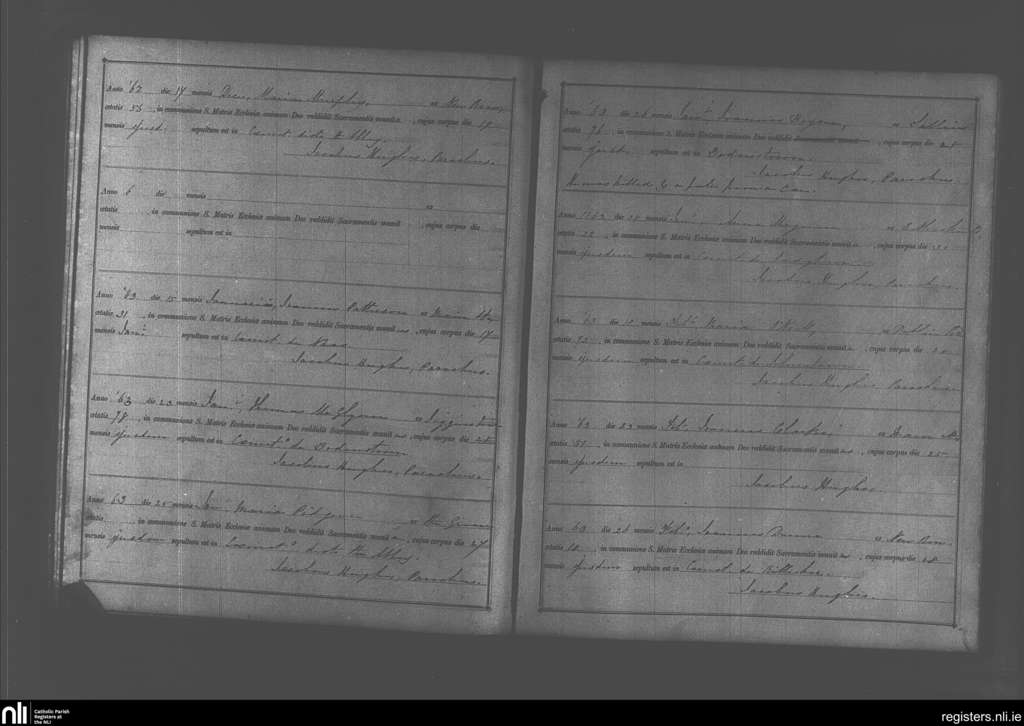 Anno '62 die 17 mensis Decr, Maria Murphy, e New Row,
ætatis 56, in communione S. Matris Ecclesiæ animam Deo reddidit Sacramentis munita, cujus corpus die 19
mensis ejusd. sepultum est in Cœmet dicto Abbey
Jacobus Hughes, Parochus.
Anno 6 die mensis e
ætatis in communione S. Matris Ecclesiæ animam Deo reddidit Sacramentis munit , cujus corpus die
mensis sepultum est in
Anno '63 die 15 mensis Januarii, Joannes Patterson e Main St
ætatis 31, in communione S. Matris Ecclesiæ animam Deo reddidit Sacramentis munitus, cujus corpus die 17
mensis Jan sepultum est in Cœmet de Naas
Jacobus Hughes, Parochus.
Anno '63 die 23 mensis Jan, Thomas McGlynn e
ætatis 78, in communione S. Matris Ecclesiæ animam Deo reddidit Sacramentis munitus, cujus corpus die 25
mensis ejusdem sepultum est in Cœmet de Bodenstown
Jacobus Hughes, Parochus.
Anno 63 die 25 mensis Jan Maria e the Green
ætatis in communione S. Matris Ecclesiæ animam Deo reddidit Sacramentis munita, cujus corpus die 27
mensis ejusdem sepultum est in Cœmet dicto the Abbey.
Jacobus Hughes, Parochus.
Anno '63 die 26 mensis Jan Joannes e Sallins
ætatis 76, in communione S. Matris Ecclesiæ animam Deo reddidit , cujus corpus die
mensis ejusd. sepultum est in Bodenstown
Jacobus Hughes, Parochus.
He was killed by a fall from a car.
Anno 1863 die 28 mensis Jan, Anna e
ætatis 22, in communione S. Matris Ecclesiæ animam Deo reddidit Sacramentis munita, cujus corpus die 30
mensis ejusdem sepultum est in Cœmet de
Jacobus Hughes Parochus.
Anno '63 die mensis Feb Maria e Dublin
ætatis 72, in communione S. Matris Ecclesiæ animam Deo reddidit Sacramentis munita, cujus corpus die
mensis ejusdem sepultum est in Cœmet de
Jacobus Hughes Parochus
Anno '63 die 23 mensis Feb. Joannes Clarke, e Main St,
ætatis 51, in communione S. Matris Ecclesiæ animam Deo reddidit Sacramentis munitus, cujus corpus die 25
mensis ejusdem sepultum est in
Jacobus Hughes
Anno '63 die 26 mensis Feb, Joannes e New Row
ætatis 10, in communione S. Matris Ecclesiæ animam Deo reddidit Sacramentis munitus, cujus corpus die 28
mensis ejusdem sepultum est in Cœmet de
Jacobus Hughes.
nli
Catholic Parish
Registers at
the NLI
registers.nli.ie